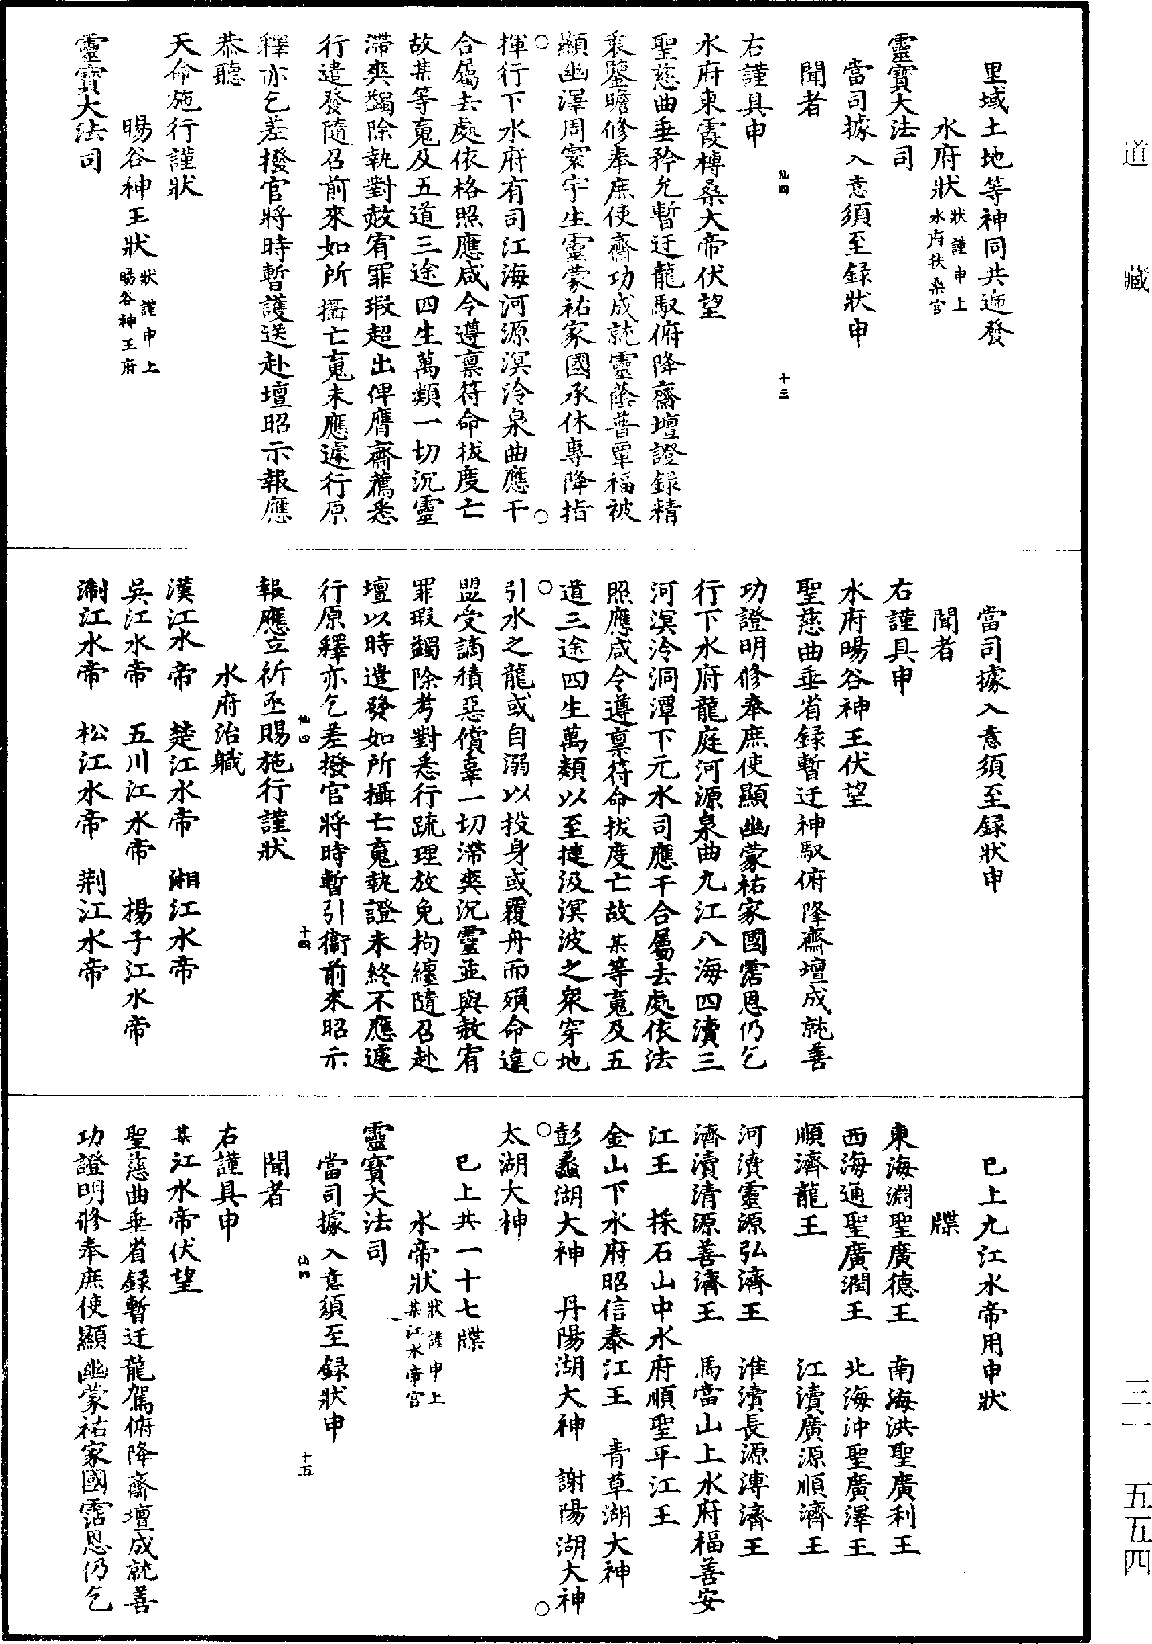 道藏
里域土地等神同共迤發
水府狀狀謹申上水府扶桑宫
靈寶大法司
當司據入意須至録狀申
聞者
右謹具申
仙四 十三
水府東霞榑桑大帝伏望
聖慈曲垂矜允暫迂龍馭俯降齋壇證録精
衷鑒瞻修奉庶使齋功成就靈蔭普覃福被
顯幽澤周寰宇生靈蒙祐家國承休專降指
揮行下水府有司江海河源溟泠泉曲應干
合屬去處依格照應咸令遵禀符命拔度亡
故某等寃及五道三途四生萬類一切沉靈
滯爽蠲除執對赦宥罪瑕超出俾膺齋薦悉
行遣發隨召前來如所攝亡寃未應遽行原
釋亦乞差撥官將時暫護送赴壇昭示報應
恭聽
天命施行謹狀
暘谷神王狀狀謹申上暘谷神王府
靈寶大法司
當司據入意須至録狀申
聞者
右謹具申
水府暘谷神王伏望
聖慈曲垂省録暫迂神馭俯降齋壇成就善
功證明修奉庶使顯幽蒙祐家國霑恩仍乞
行下水府龍庭河源泉曲九江八海四瀆三
河溟泠洞潭下元水司應干合屬去處依法
照應咸令遵禀符命拔度亡故某等寃及五
道三途四生萬類以至揵汲溟波之衆穿地
引水之龍或自溺以投身或覆舟而殞命違
盟受謫積惡償辜一切滯爽沉靈並與赦宥
罪瑕蠲除考對悉行疏理放免拘纏隨召赴
壇以時遣發如所攝亡寃執證未終不應遽
行原釋亦乞差撥官將時暫引衞前來昭示
仙四 十四
報應立祈丞賜施行謹狀
水府治職
漢江水帝 楚江水帝 湘江水帝
吳江水帝 五川江水帝 揚子江水帝
淛江水帝 松江水帝 荆江水帝
已上九江水帝用申狀
牒
東海淵聖廣德王 南海洪聖廣利王
西海通聖廣潤王 北海沖聖廣澤王
順濟龍王 江瀆廣源順濟王
河瀆靈源弘濟王 淮瀆長源漙濟王
濟瀆清源善濟王 馬當山上水府福善安
江王 採石山中水府順聖平江王
金山下水府昭信泰江王 青草湖大神
彭蠡湖大神 丹陽湖大神 謝陽湖大神
太湖大神
已上共一十七牒
水帝狀狀謹申上某江水帝宫
靈寶大法司
當司據入意須至録狀申
仙四 十五
聞者
右謹具申
某江水帝伏望
聖慈曲垂省録暫迂龍駕俯降齋壇成就善
功證明修奉庶使顯幽蒙祐家國霑恩仍乞
三一 五五四